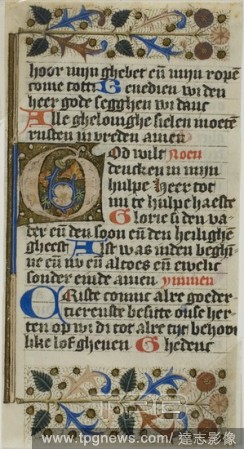 hoor mijn ghebet eñ mijn roepē
come tot ti Benedien wi den
heer gode segghen wi danc
Alle ghelouighe sielen moetē
rusten in vreden amen
God wilt Noen
dencken in mijn
hulpe heer tot
mi te hulpe haeste
Glorie si den va
der eñ den soon eñ den heilighē
gheest Alst was inden beghī
ne eñ nv eñ altoes eñ ewelic
sonder einde amen ymmen
Criste comut alre goeder
tierenste besitte onse her
ten op wi di tot alre tijt behou
like lof gheuen Ghedenc
www.tpgnews.com/達志影像